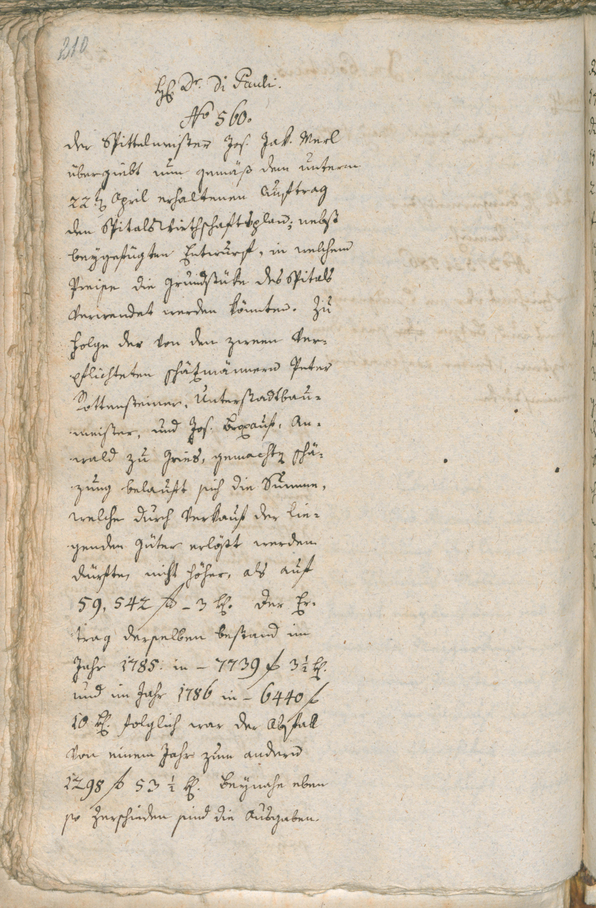 210.
H. Dr. Di Pauli.
No 560.
der Spittelmeister Jos. Jak. Merl
übergiebt nun gemäß dem unterm
22ten April erhaltenen Auftrag
den Spitalswirthschaftsplan, nebst
beygefügten Entwurfe, in welchem
Preise die Grundstüke des Spitals
verwendet werden könnten. Zu
Folge der von den zween ver-
pflichteten Schätzmännern Peter
Rottensteiner, Unterstadtbau-
meister, und Jos. An-
wald zu Gries, gemachten Schä-
zung belauft sich die Summe,
welche durch Verkauf der lie-
genden Güter erlößt werden
dürfte, nicht höher, als auf
59,542 f - 3 kr. Der Er-
trag derselben bestand im
Jahr 1785. in - 7739 f 3½ kr.
und im Jahr 1786 in - 6440 f
10 kr. folglich war der Abfall
von einem Jahr zum andern
1298 f 53½ kr. Beynahe eben
so verschieden sind die Ausgaben